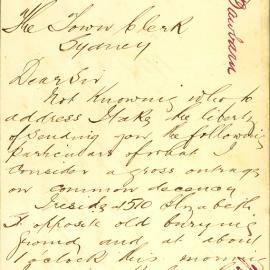 The Town Clerk
Sydney
Dear Sir
Not Knowing who to
address I take the liberty
of sending you the following
particulars of what I
consider a gross outrage
on common decency
I reside 1510 Elizabeth
St opposite old burying
ground and at about
1 oclock this morning